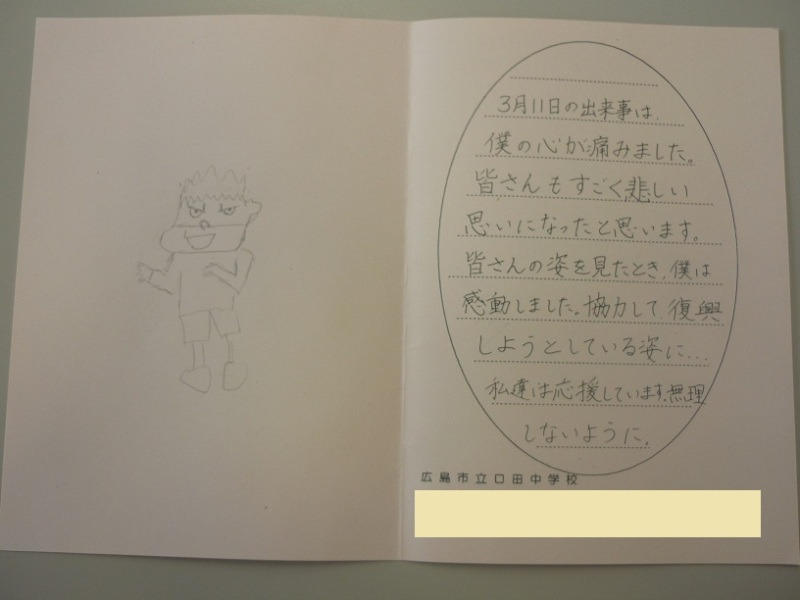 3月11日の出来事は、
僕の心が痛みました。
皆さんもすごく悲しい
思いになったと思います。
皆さんの姿を見たとき、僕は
感動しました。協力して、復興
しようとしている姿に...
私達は応援しています。無理
しないように。
広島市立口田中学校